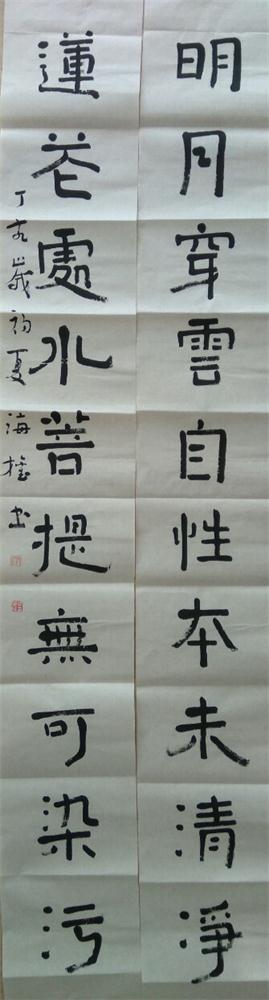 明月穿雲自性本未清淨
蓮花處水菩提無可染污
丁亥歲初夏海權書